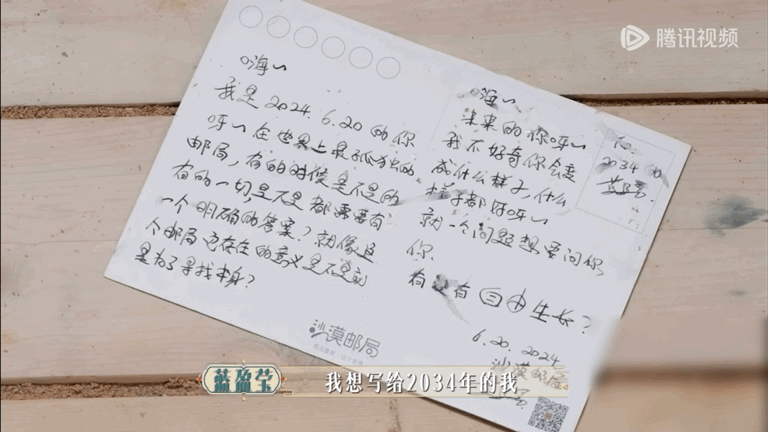 腾讯视频
嗨~
我是2024.6.20的你
呀~在世界上最孤独的
邮局，有的时候是不是所
有的一切，是不是都需要有
一个明确的答案？就像这
个邮局它存在的意义是不是就
是为了寻找本身？
嗨~
未来的你呀~
我不好奇你会变
成什么样子，什么
样子都好呀~
就一个问题想要问你
你
有没有自由生长？
6.20.2024
沙漠邮局
To:
2034的
沙漠邮局
蓝盈莹
我想写给2034年的我